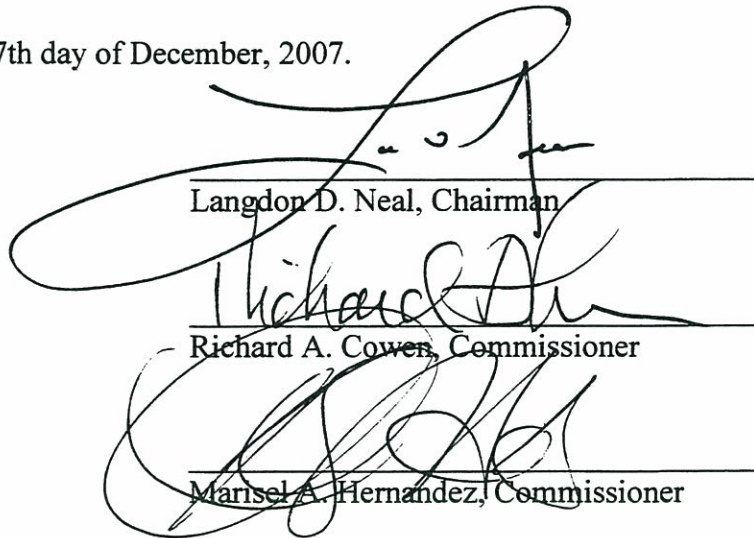 7th day of December, 2007.
Langdon D. Neal, Chairman
Richard
Richard A. Cowen, Commissioner
Marisel A. Hernandez, Commissioner